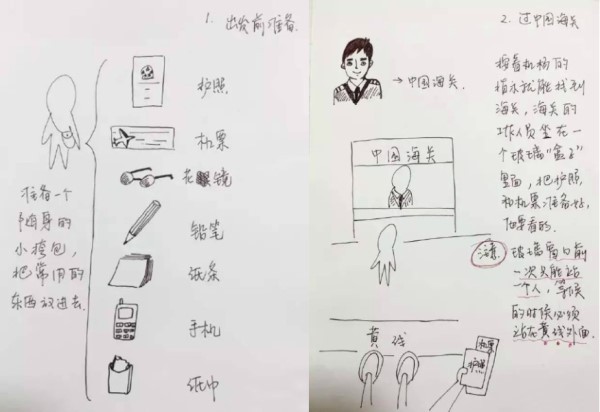 1. 出发前准备.
护照
机票
花眼镜
铅笔
纸条
手机
纸巾
准备一个
随身的
小挎包,
把常用的
东西放进去.
2. 过中国海关
→中国海关.
中国海关
按着机场的
指示就能找到
海关, 海关的
工作人员坐在一
个玻璃“盒子”
里面, 把护照
和机票准备好,
他要看的.
注意 玻璃窗口前
一次只能站
一个人, 等候
的时候必须
站在黄线外面.
黄线
机票
护照